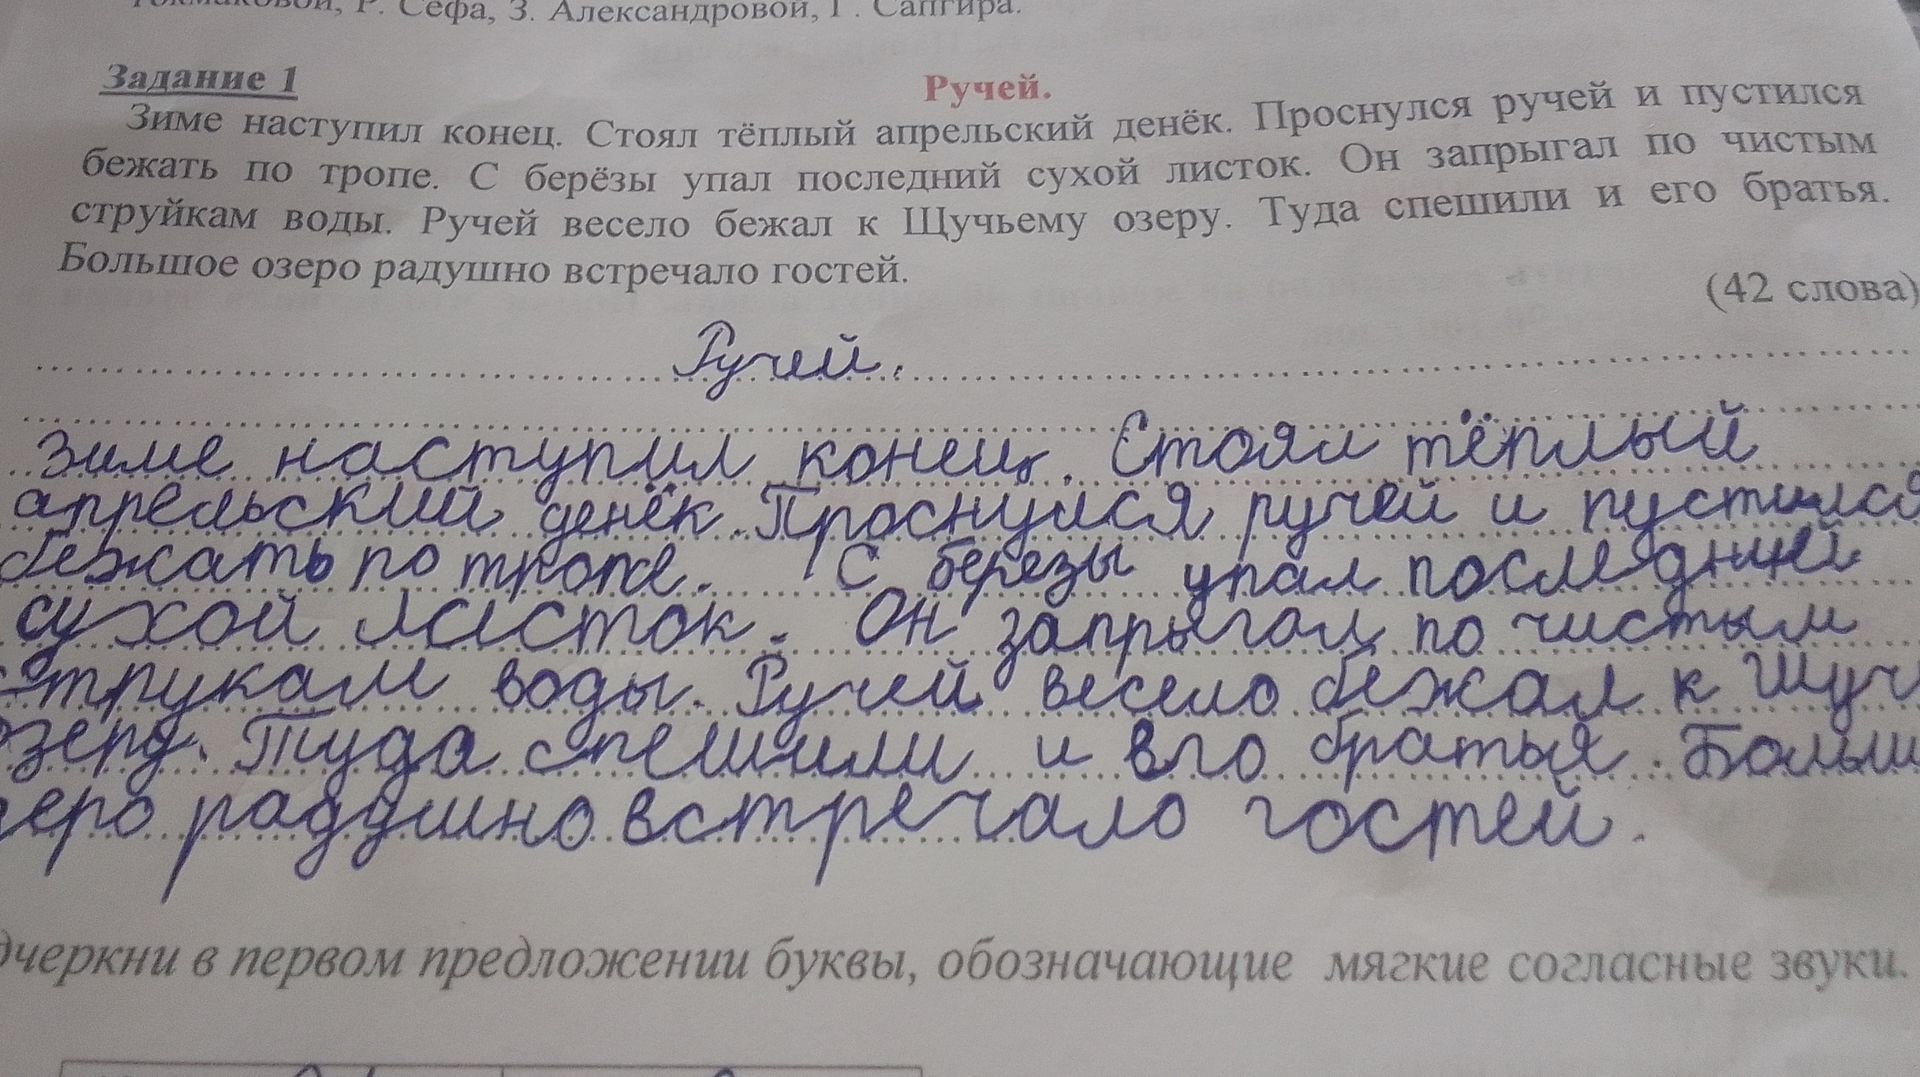 Р. Сефа, З. Александровой, Г. Сапгира.
Задание 1
Ручей.
Зиме наступил конец. Стоял тёплый апрельский денёк. Проснулся ручей и пустился
бежать по тропе. С берёзы упал последний сухой листок. Он запрыгал по чистым
струйкам воды. Ручей весело бежал к Щучьему озеру. Туда спешили и его братья.
Большое озеро радушно встречало гостей.
(42 слова)
Ручей.
Зиме наступил конец. Стоял тёплый
апрельский денёк. Проснулся ручей и пустился
бежать по тропе. С березы упал последний
сухой листок. Он запрыгал по чистым
струкам воды. Ручей весело бежал к Щуч
озеру. Туда спешили и его братья. Больш
зеро радушно встречало гостей.
дчеркни в первом предложении буквы, обозначающие мягкие согласные звуки.